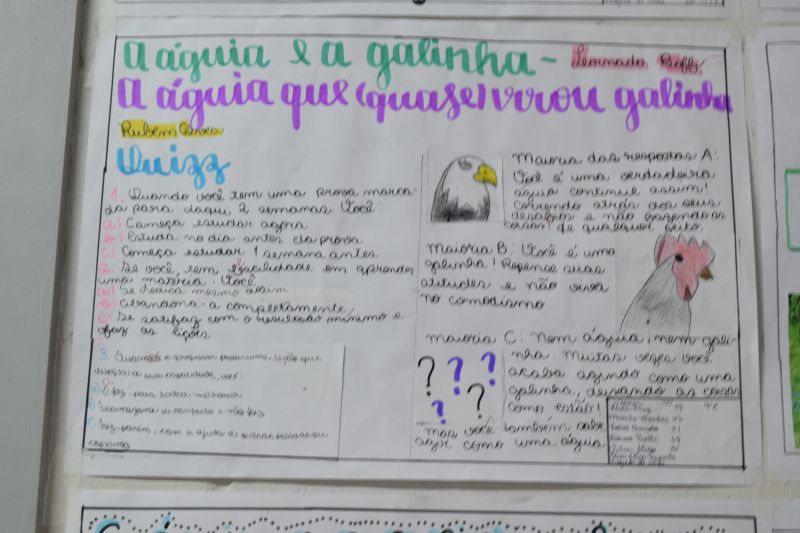 A águia e a galinha - Leonardo Boff
A águia que (quase) virou galinha
Rubem Alves
Quizz
1. Quando você tem uma prova marca-
da para daqui 2 semanas. Você:
a) Começa estudar agora
b) Estuda no dia antes da prova
c) Começa estudar 1 semana antes
2. Se você tem em aprender
uma matéria. Você:
a) Se dedica mesmo assim
b) Abandona-a completamente
c) Se satisfaz com o resultado mínimo e
faz as lições
3. Quando o professor passa uma lição que
a sua capacidade, você:
a) faz para
b) e não faz
c) faz porém, com a ajuda de outras pessoas ou
Maioria das respostas A:
Você é uma verdadeira
águia continue assim!
Correndo atrás dos seus
desafios e não fazendo as
coisas de qualquer jeito.
Maioria B: Você é uma
galinha! Repense suas
atitudes e não viva
no comodismo
Maioria C: Nem águia, nem gali-
nha. Muitas vezes você
acaba agindo como uma
galinha, deixando as coisas
como estão!
Mas você também sabe
agir como uma águia
? ? ?
? ?